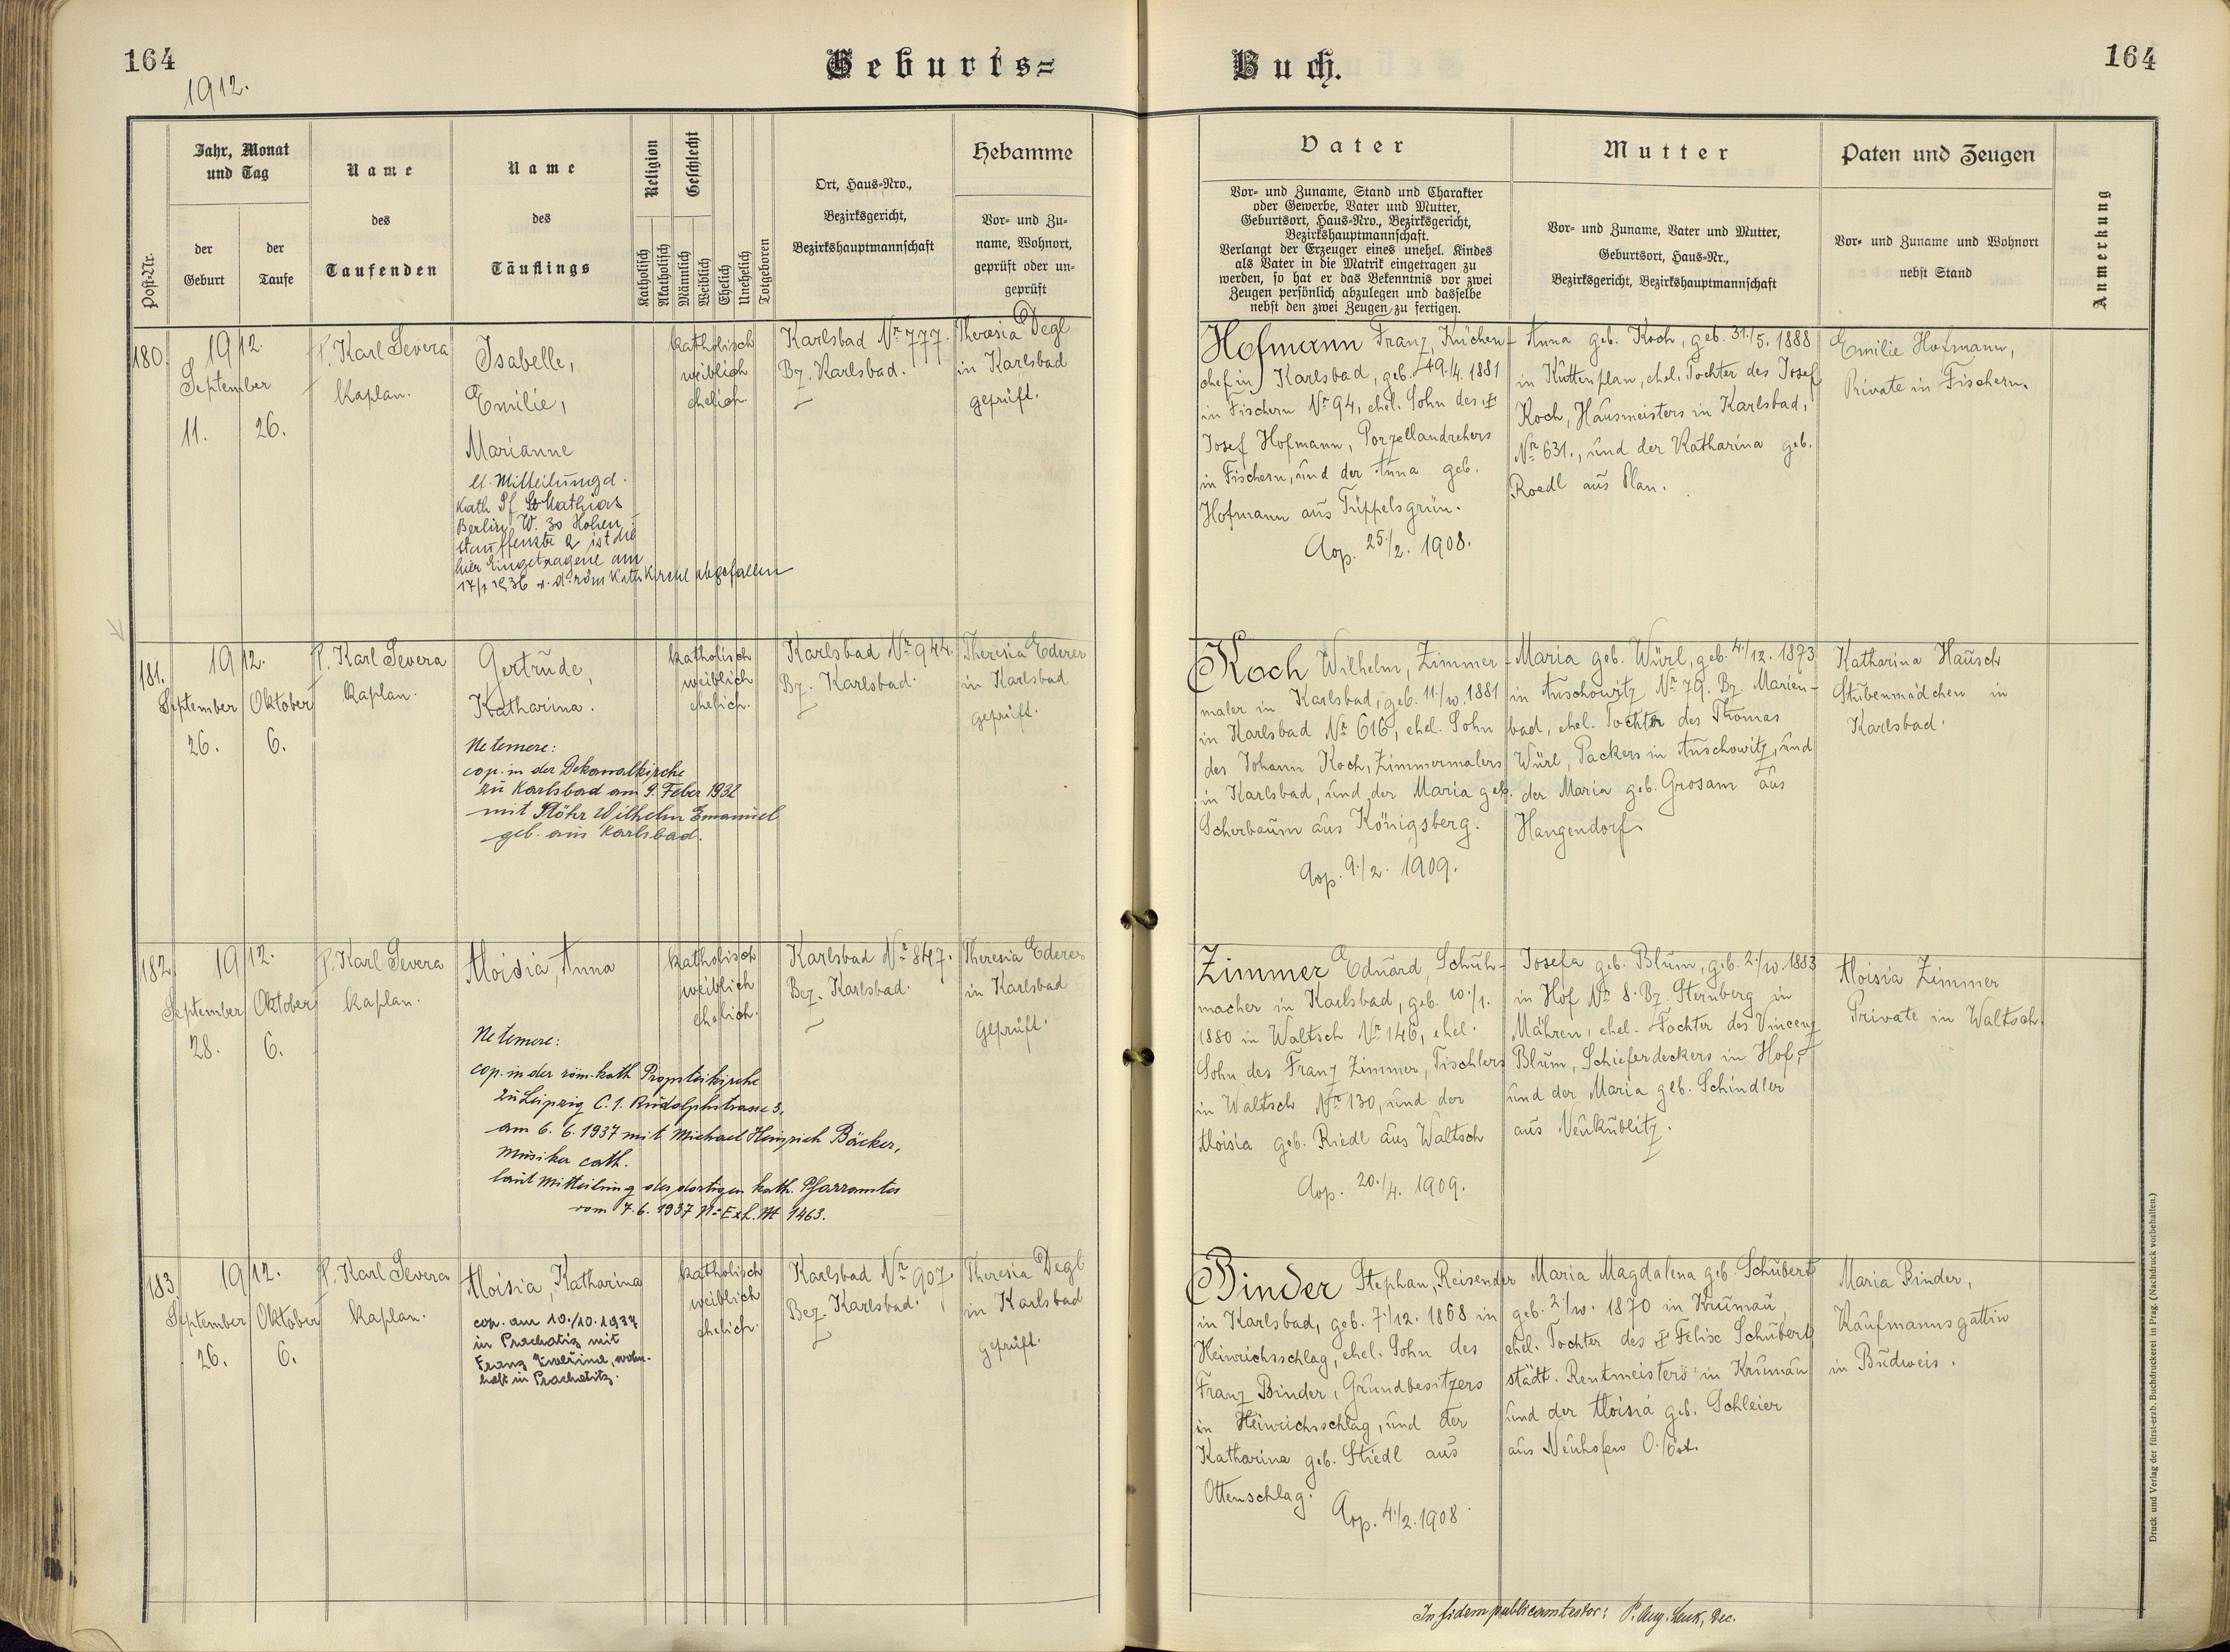 164
1912.
Geburts=
Buch.
164
Post-Nr.
Jahr, Monat
und Tag
der
Geburt
der
Taufe
Name
des
Taufenden
Name
des
Täuflings
Religion
Katholisch
Akatholisch
Geschlecht
Männlich
Weiblich
Ehelich
Unehelich
Totgeboren
Ort, Haus=Nro.,
Bezirksgericht,
Bezirkshauptmannschaft
Hebamme
Vor= und Zu=
name, Wohnort,
geprüft oder un=
geprüft
Vater
Vor= und Zuname, Stand und Charakter
oder Gewerbe, Vater und Mutter,
Geburtsort, Haus=Nro., Bezirksgericht,
Bezirkshauptmannschaft.
Verlangt der Erzeuger eines unehel. Kindes
als Vater in die Matrik eingetragen zu
werden, so hat er das Bekenntnis vor zwei
Zeugen persönlich abzulegen und dasselbe
nebst den zwei Zeugen zu fertigen.
Mutter
Vor= und Zuname, Vater und Mutter,
Geburtsort, Haus=Nr.,
Bezirksgericht, Bezirkshauptmannschaft
Paten und Zeugen
Vor= und Zuname und Wohnort
nebst Stand
Anmerkung
180.
1912.
September
11.
26.
P. Karl Severa
Kaplan.
Isabelle,
Emilie,
Marianne
lt. Mitteilung d.
Kath Pf St Mathias
Berlin W. 30 Hohen-
stauffenstr 2 ist die
hier Eingetragene am
17/1 1936 v. d. röm Kath Kirche abgefallen
katholisch
weiblich
ehelich
Karlsbad Nr 777.
Bz. Karlsbad.
Theresia Degl
in Karlsbad
geprüft.
Hofmann Franz, Küchen-
chef in Karlsbad, geb. 19./4. 1881
in Fischern Nr 94, ehel. Sohn des †
Josef Hofmann, Porzellandrehers
in Fischern, und der Anna geb.
Hofmann aus Tüppelsgrün.
Cop. 25./2. 1908.
Anna geb. Koch, geb. 31./5. 1888
in Kuttenplan, ehel. Tochter des Josef
Koch, Hausmeisters in Karlsbad,
Nr 631., und der Katharina geb.
Roedl aus Plan.
Emilie Hofmann,
Private in Fischern.
181.
1912.
September
Oktober
26.
6.
P. Karl Severa
Kaplan.
Gertrude,
Katharina.
Ne temere:
cop. in der Dekanalkirche
zu Karlsbad am 9. Feber 1932
mit Stöhr Wilhelm Emanuel
geb. aus Karlsbad.
katholisch
weiblich
ehelich.
Karlsbad Nr 944.
Bz. Karlsbad.
Theresia Ederer
in Karlsbad
geprüft.
Koch Wilhelm, Zimmer-
maler in Karlsbad, geb. 11./10. 1881
in Karlsbad Nr 616, ehel. Sohn
des Johann Koch, Zimmermalers
in Karlsbad, und der Maria geb.
Scherbaum aus Königsberg.
Cop. 9./2. 1909.
Maria geb. Würl, geb. 4./12. 1873
in Auschowitz Nr 79. Bz. Marien-
bad, ehel. Tochter des Thomas
Würl, Packers in Auschowitz, und
der Maria geb. Grosam aus
Hangendorf
Katharina Hausch
Stubenmädchen in
Karlsbad.
182.
1912.
September
Oktober
28.
6.
P. Karl Severa
Kaplan.
Aloisia, Anna
Ne temere:
cop. in der röm. kath Propsteikirche
zu Leipzig C. 1. Rudolphstrasse 3.
am 6. 6. 1937 mit Michael Heinrich Bäcker,
Musiker cath.
laut Mitteilung des dortigen kath. Pfarramtes
vom 7. 6. 1937 No Exh. M 1463.
katholisch
weiblich
ehelich.
Karlsbad Nr 847.
Bez. Karlsbad.
Theresia Ederer
in Karlsbad
geprüft.
Zimmer Eduard, Schuh-
macher in Karlsbad, geb. 10./1.
1880 in Waltsch Nr 146, ehel.
Sohn des Franz Zimmer, Tischlers
in Waltsch Nr 130, und der
Aloisia geb. Riedl aus Waltsch
Cop. 20./4. 1909.
Josefa geb. Blum, geb. 2./10. 1883
in Hof Nr 8. Bz. Sternberg in
Mähren, ehel. Tochter des Vincenz
Blum, Schieferdeckers in Hof,
und der Maria geb. Schindler
aus Neukublitz.
Aloisia Zimmer
Private in Waltsch.
183.
1912.
September
Oktober
26.
6.
P. Karl Severa
Kaplan.
Aloisia, Katharina
cop. am 10./10. 1937
in Prachatiz mit
Franz
wohn-
haft in Prachatitz.
katholisch
weiblich
ehelich.
Karlsbad Nr 907.
Bez. Karlsbad.
Theresia Degl
in Karlsbad
geprüft.
Binder Stephan, Reisender
in Karlsbad, geb. 7./12. 1868 in
Heinrichsschlag, ehel. Sohn des
Franz Binder, Grundbesitzers
in Heinrichsschlag, und der
Katharina geb. Stiedl aus
Ottenschlag.
Cop. 4./2. 1908.
Maria Magdalena geb. Schubert
geb. 2./10. 1870 in Krumau,
ehel. Tochter des † Felix Schubert
städt. Rentmeisters in Krumau
und der Aloisia geb. Schleier
aus Neuhofen O./Öst.
Maria Binder,
Kaufmannsgattin
in Budweis.
In fidem publicam testor: P. Aug. Dec.
Druck und Verlag der fürst-erzb. Buchdruckerei in Prag. (Nachdruck vorbehalten.)